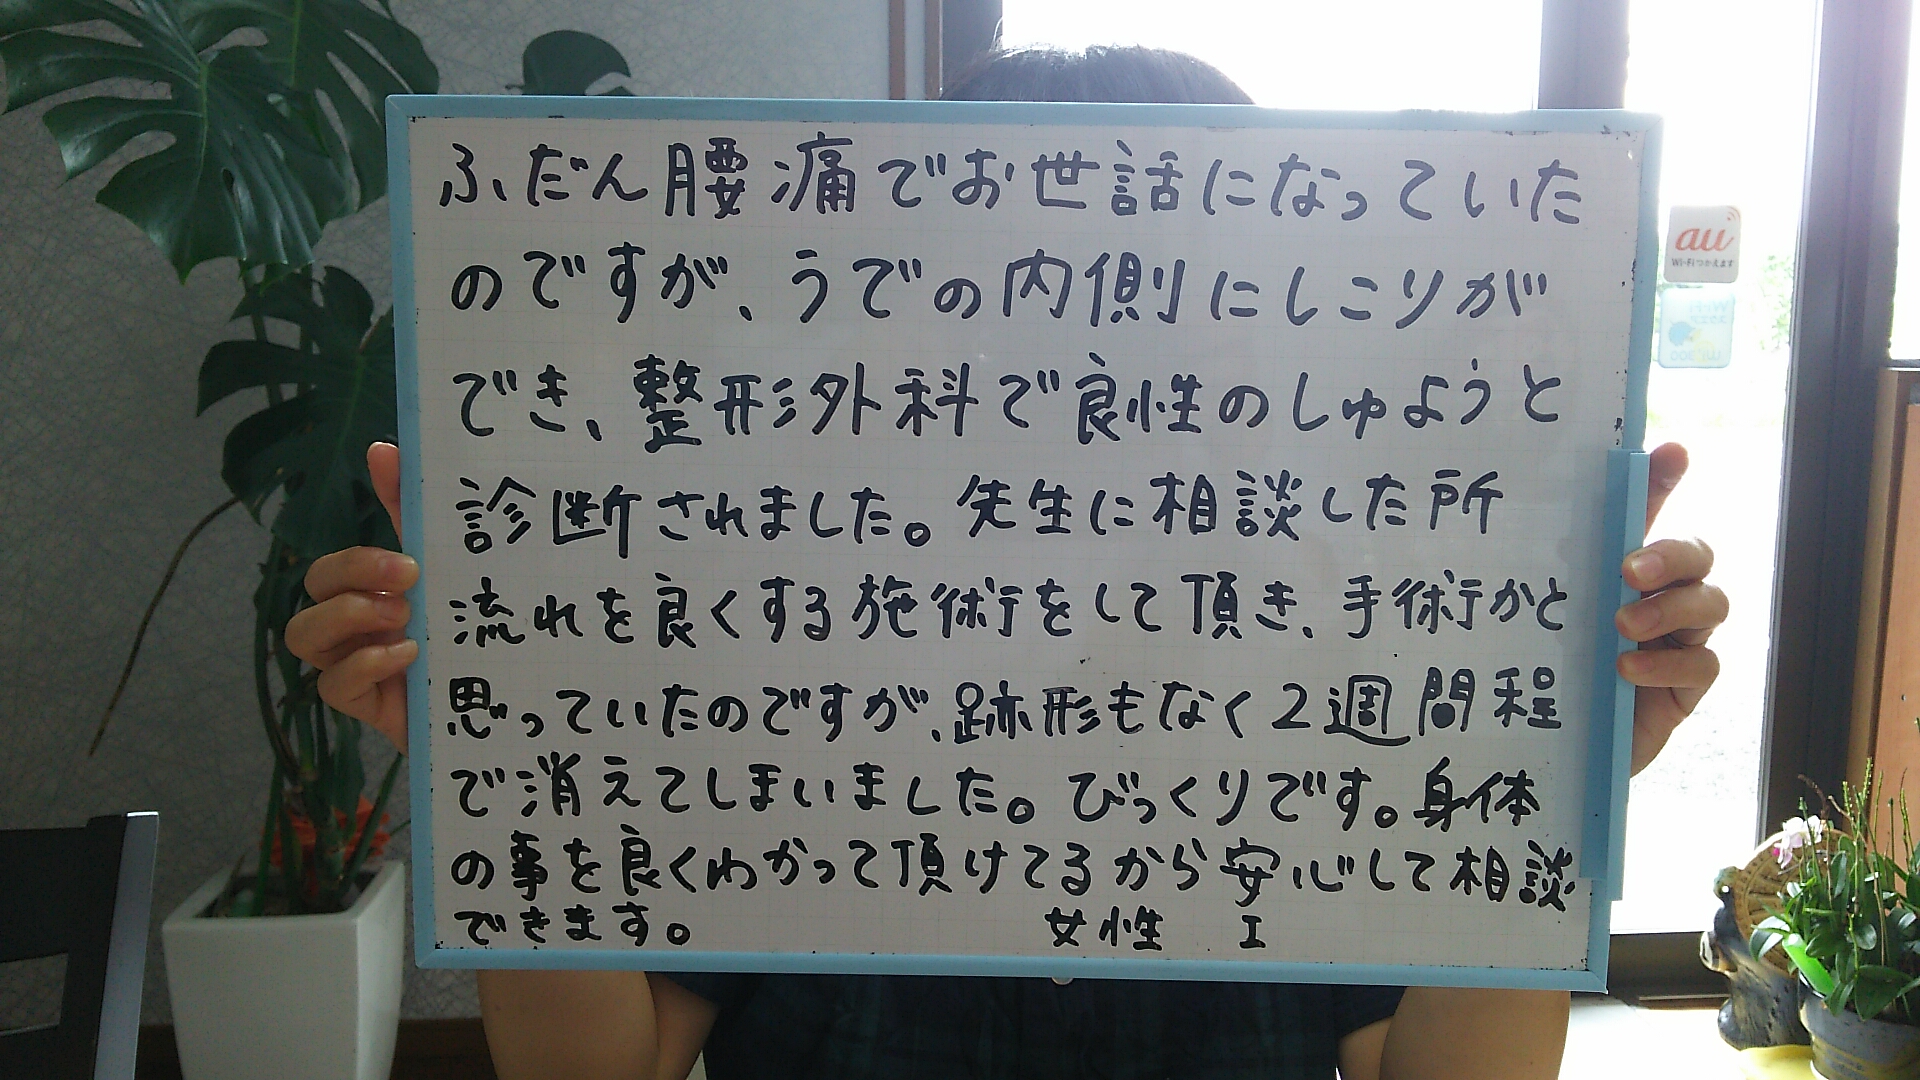 ふだん腰痛でお世話になっていた
のですが、うでの内側にしこりが
でき、整形外科で良性のしゅようと
診断されました。先生に相談した所
流れを良くする施術をして頂き、手術かと
思っていたのですが、跡形もなく2週間程
で消えてしまいました。びっくりです。身体
の事を良くわかって頂けてるから安心して相談
できます。 女性 I
au
Wi-Fiつかえます